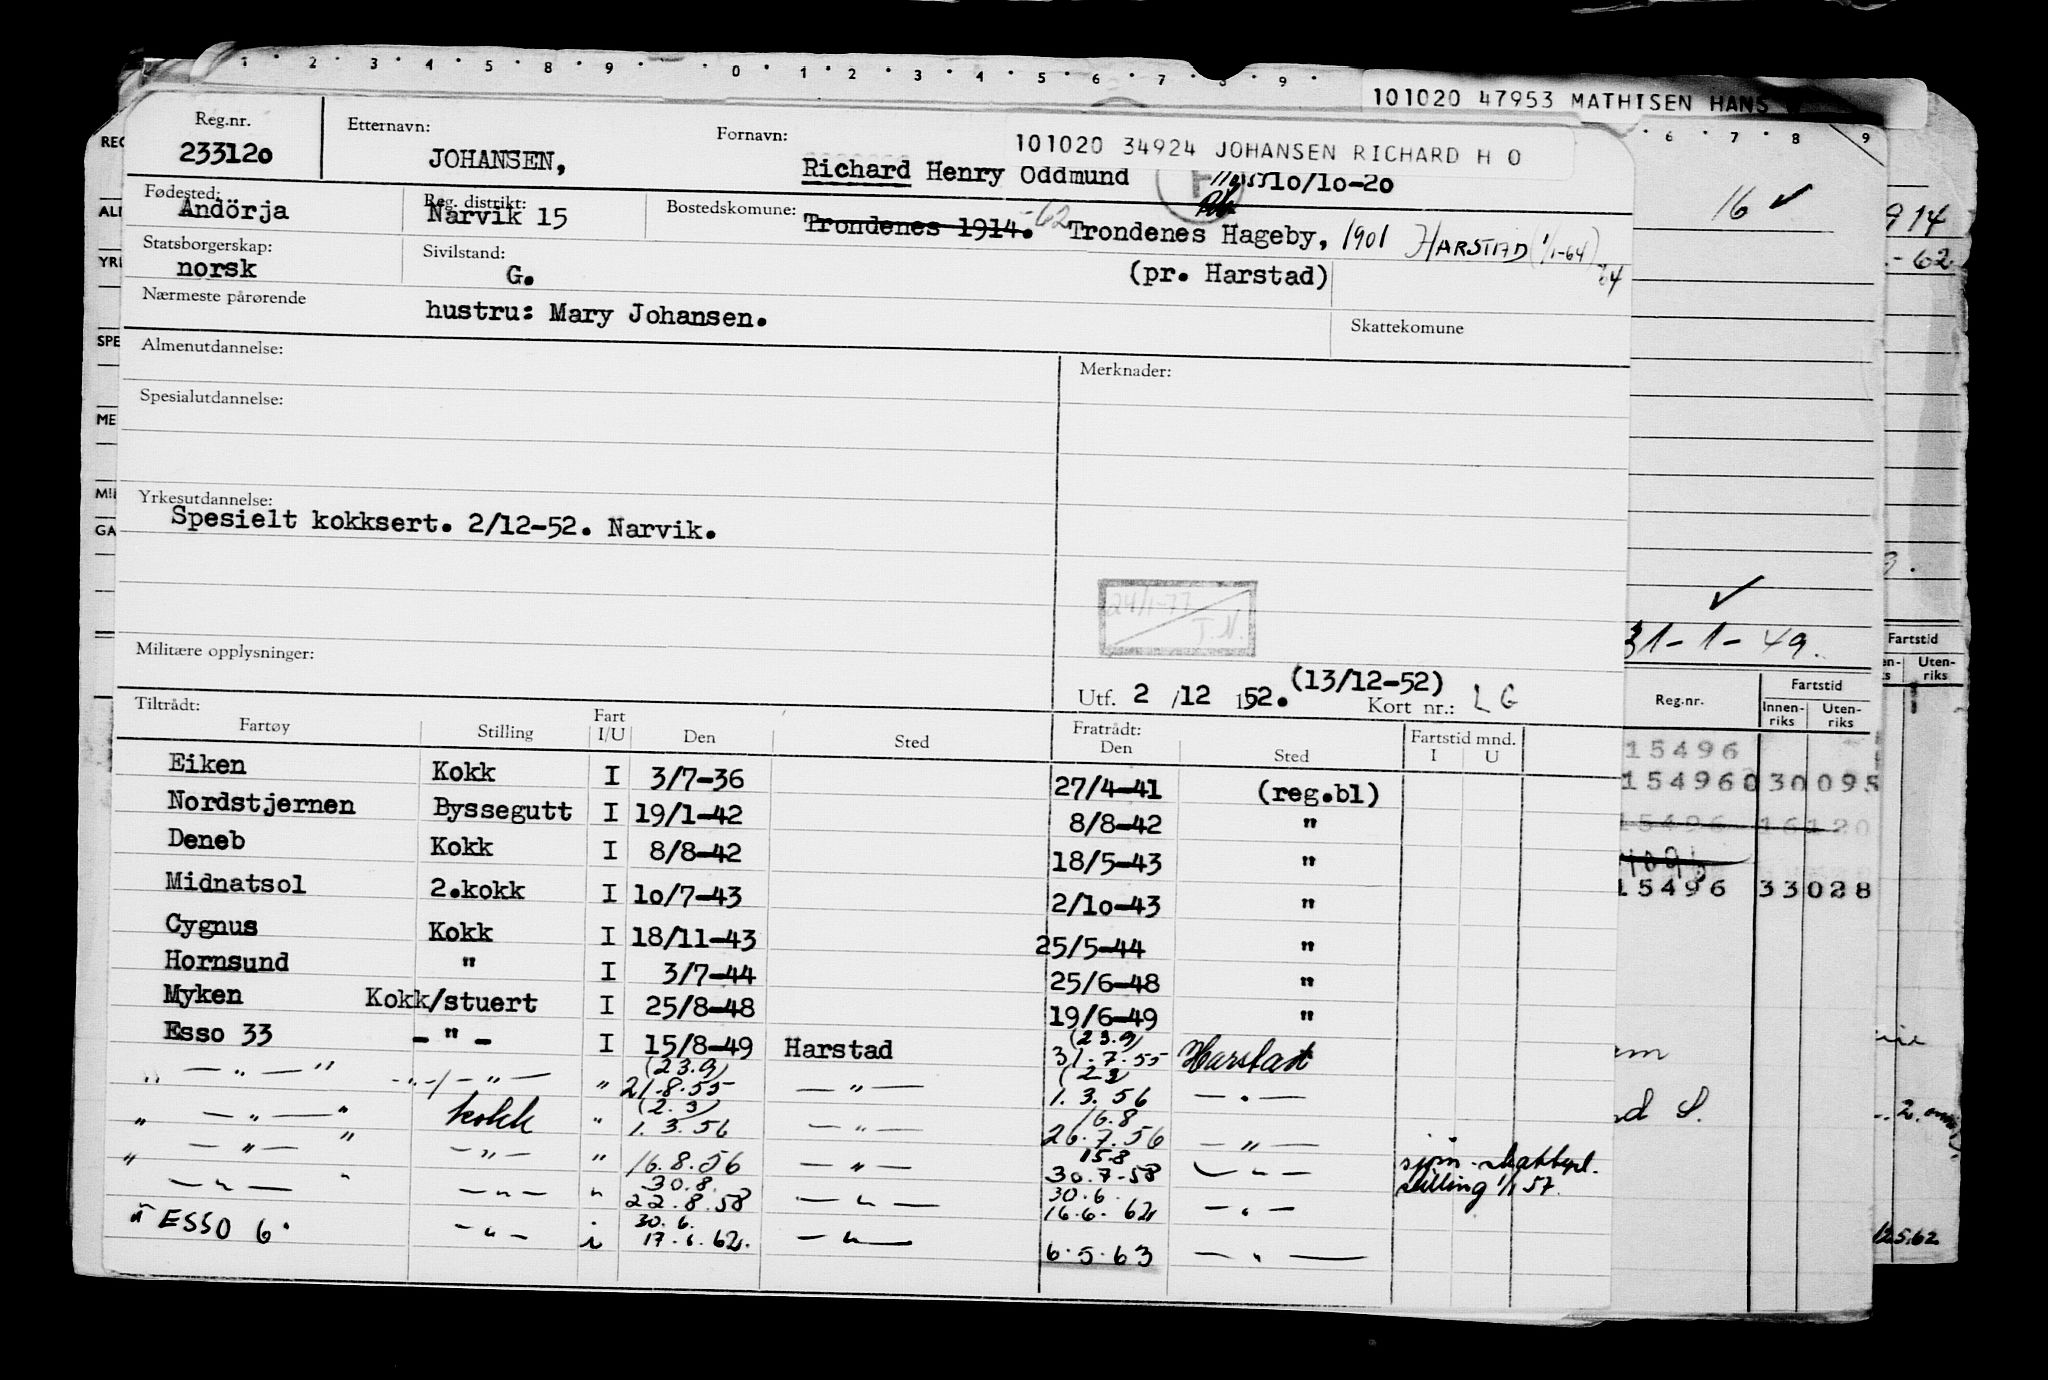 1 2 3 4 5 8 9 0 1 2 3 4 5 6 7 8 9
101020 47953 MATHISEN HANS
6 7 8 9
Reg.nr. Etternavn: Fornavn: 101020 34924 JOHANSEN RICHARD H O
233120 JOHANSEN, Richard Henry Oddmund 10/10-20
16 ✓
914
Fødested: Reg. distrikt: Bostedskommune:
Andörja Narvik 15 Trondenes 1914. -62 Trondenes Hageby, 1901 HARSTAD (1/1-64)
Statsborgerskap: Sivilstand:
norsk G. (pr. Harstad) 64
- 62
Nærmeste pårørende hustru: Mary Johansen. Skattekomune
Almenutdannelse: Merknader:
Spesialutdannelse:
Yrkesutdannelse:
Spesielt kokksert. 2/12-52. Narvik.
24/1-77
T.N.
31-1-49.
Militære opplysninger:
Utf. 2 /12 1952. (13/12-52) Kort nr.: L G
Tiltrådt: Fratrådt:
Fartøy Stilling Fart I/U Den Sted Den Sted Fartstid mnd. I U
Reg.nr. Fartstid Innen-riks Uten-riks
Fartstid Uten-riks
Eiken Kokk I 3/7-36 27/4-41 (reg.bl)
Nordstjernen Byssegutt I 19/1-42 8/8-42 "
Deneb Kokk I 8/8-42 18/5-43 "
Midnatsol 2.kokk I 10/7-43 2/10-43 "
Cygnus Kokk I 18/11-43 25/5-44 "
Hornsund " I 3/7-44 25/6-48 "
Myken Kokk/stuert I 25/8-48 19/6-49 "
Esso 33 - " - I 15/8-49 Harstad (23.9) 31.7.55 Harstad
" — " — " - " - / - " - " (23.9) 21.8.55 — " — 1.3.56 — " —
" — " — " kokk " (2.3) 1.3.56 — " — 16.8 26.7.56 — " —
" — " — " — " — " 16.8.56 — " — 15.8 30.7.58 — " — sjøm. skattepl.
— " — " — " — " 30.8. 22.8.58 — " — 30.6. 16.6.62 — " — stilling 1/1 57.
" ESSO 6. — " — i 30.6. 17.6.62. — " — 6.5.63 — " —
15496
154960 30 095
15496 16120
15496 33028
12.5.62